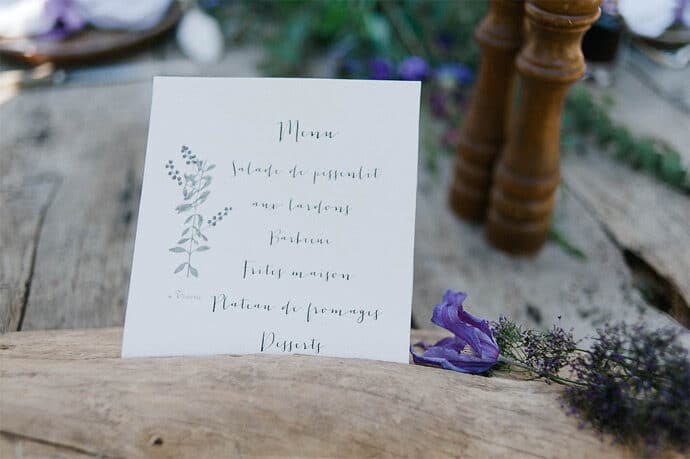 Menu
Salade de pissenlit
aux lardons
Barbecue
Frites maison
Plateau de fromages
Desserts